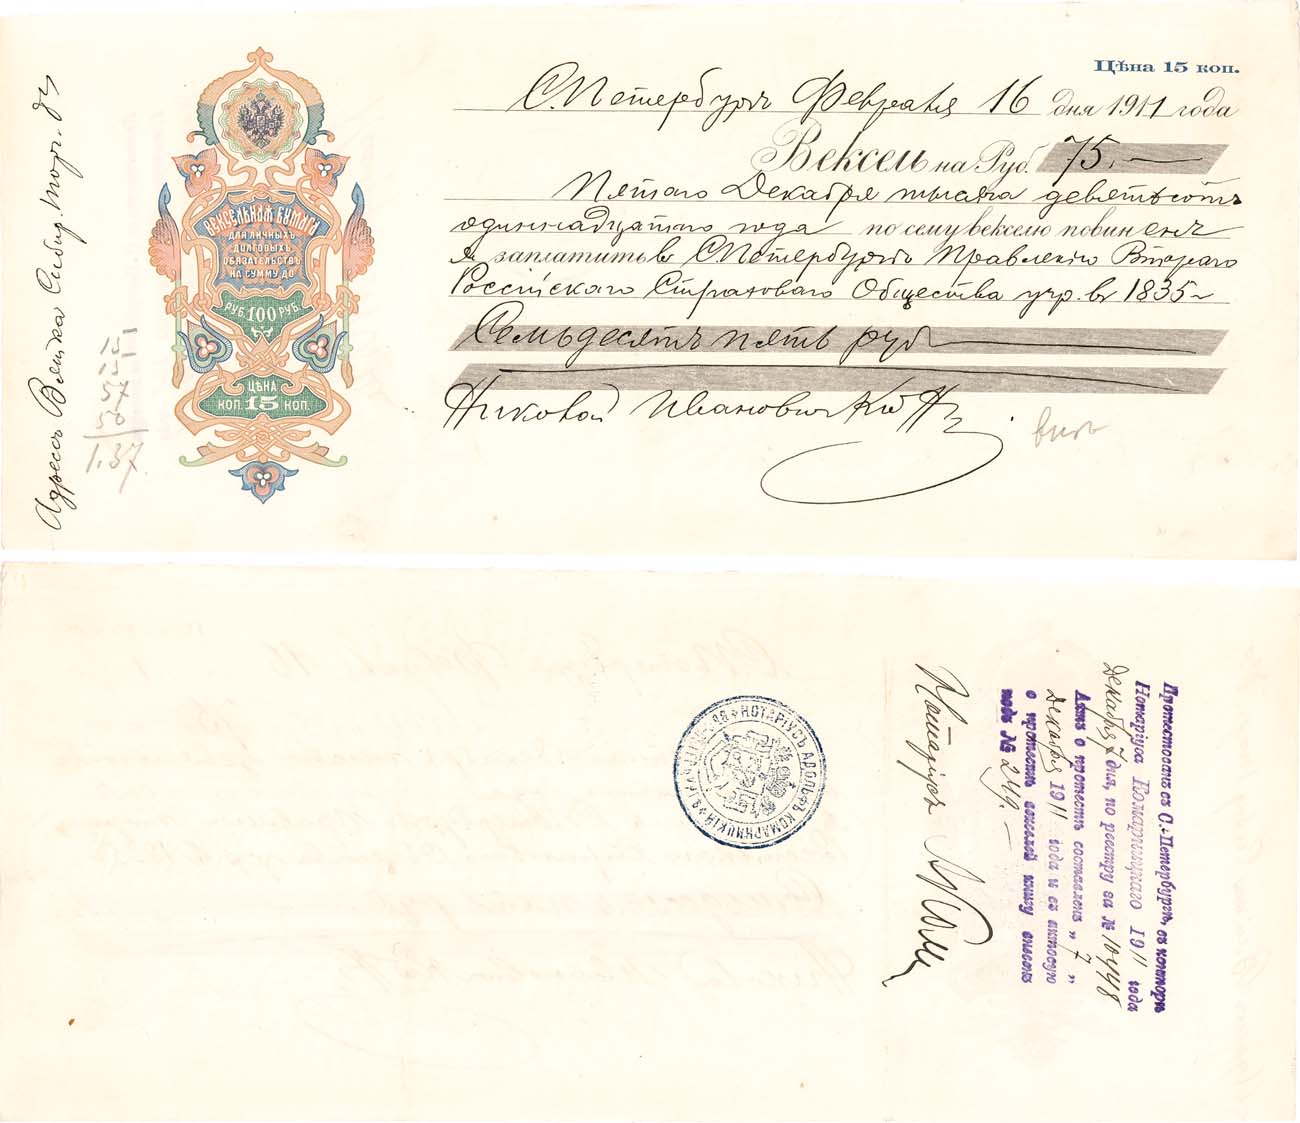 Цѣна 15 коп.
С.Петербургъ Февраля 16 дня 1911 года
Вексель на Руб. 75.—
Пятаго Декабря тысяча девятьсотъ
одиннадцатаго года по сему векселю повиненъ
я заплатить въ С.Петербургѣ Правленію Втораго
Россійскаго Страховаго Общества учр. въ 1835 г
Семьдесятъ пять руб
Ивановичъ
Адресъ Вятка Сибир. торг.
ВЕКСЕЛЬНАЯ БУМАГА
ДЛЯ ЛИЧНЫХЪ
ДОЛГОВЫХЪ
ОБЯЗАТЕЛЬСТВЪ
НА СУММУ ДО
РУБ. 100 РУБ.
ЦѢНА
КОП. 15 КОП.
15
15
57
50
1.37.
Протестованъ въ С.-Петербургѣ, въ конторѣ
Нотаріуса Комарницкаго 1911 года
Декабря 7 дня, по реестру за № 10448
Актъ о протестѣ составленъ „ 7 „
Декабря 1911 года и въ актовую
о протестѣ векселей книгу внесенъ
подъ № 249.—
Нотаріусъ
НОТАРІУСЪ АДОЛЬФЪ КОМАРНИЦКІЙ